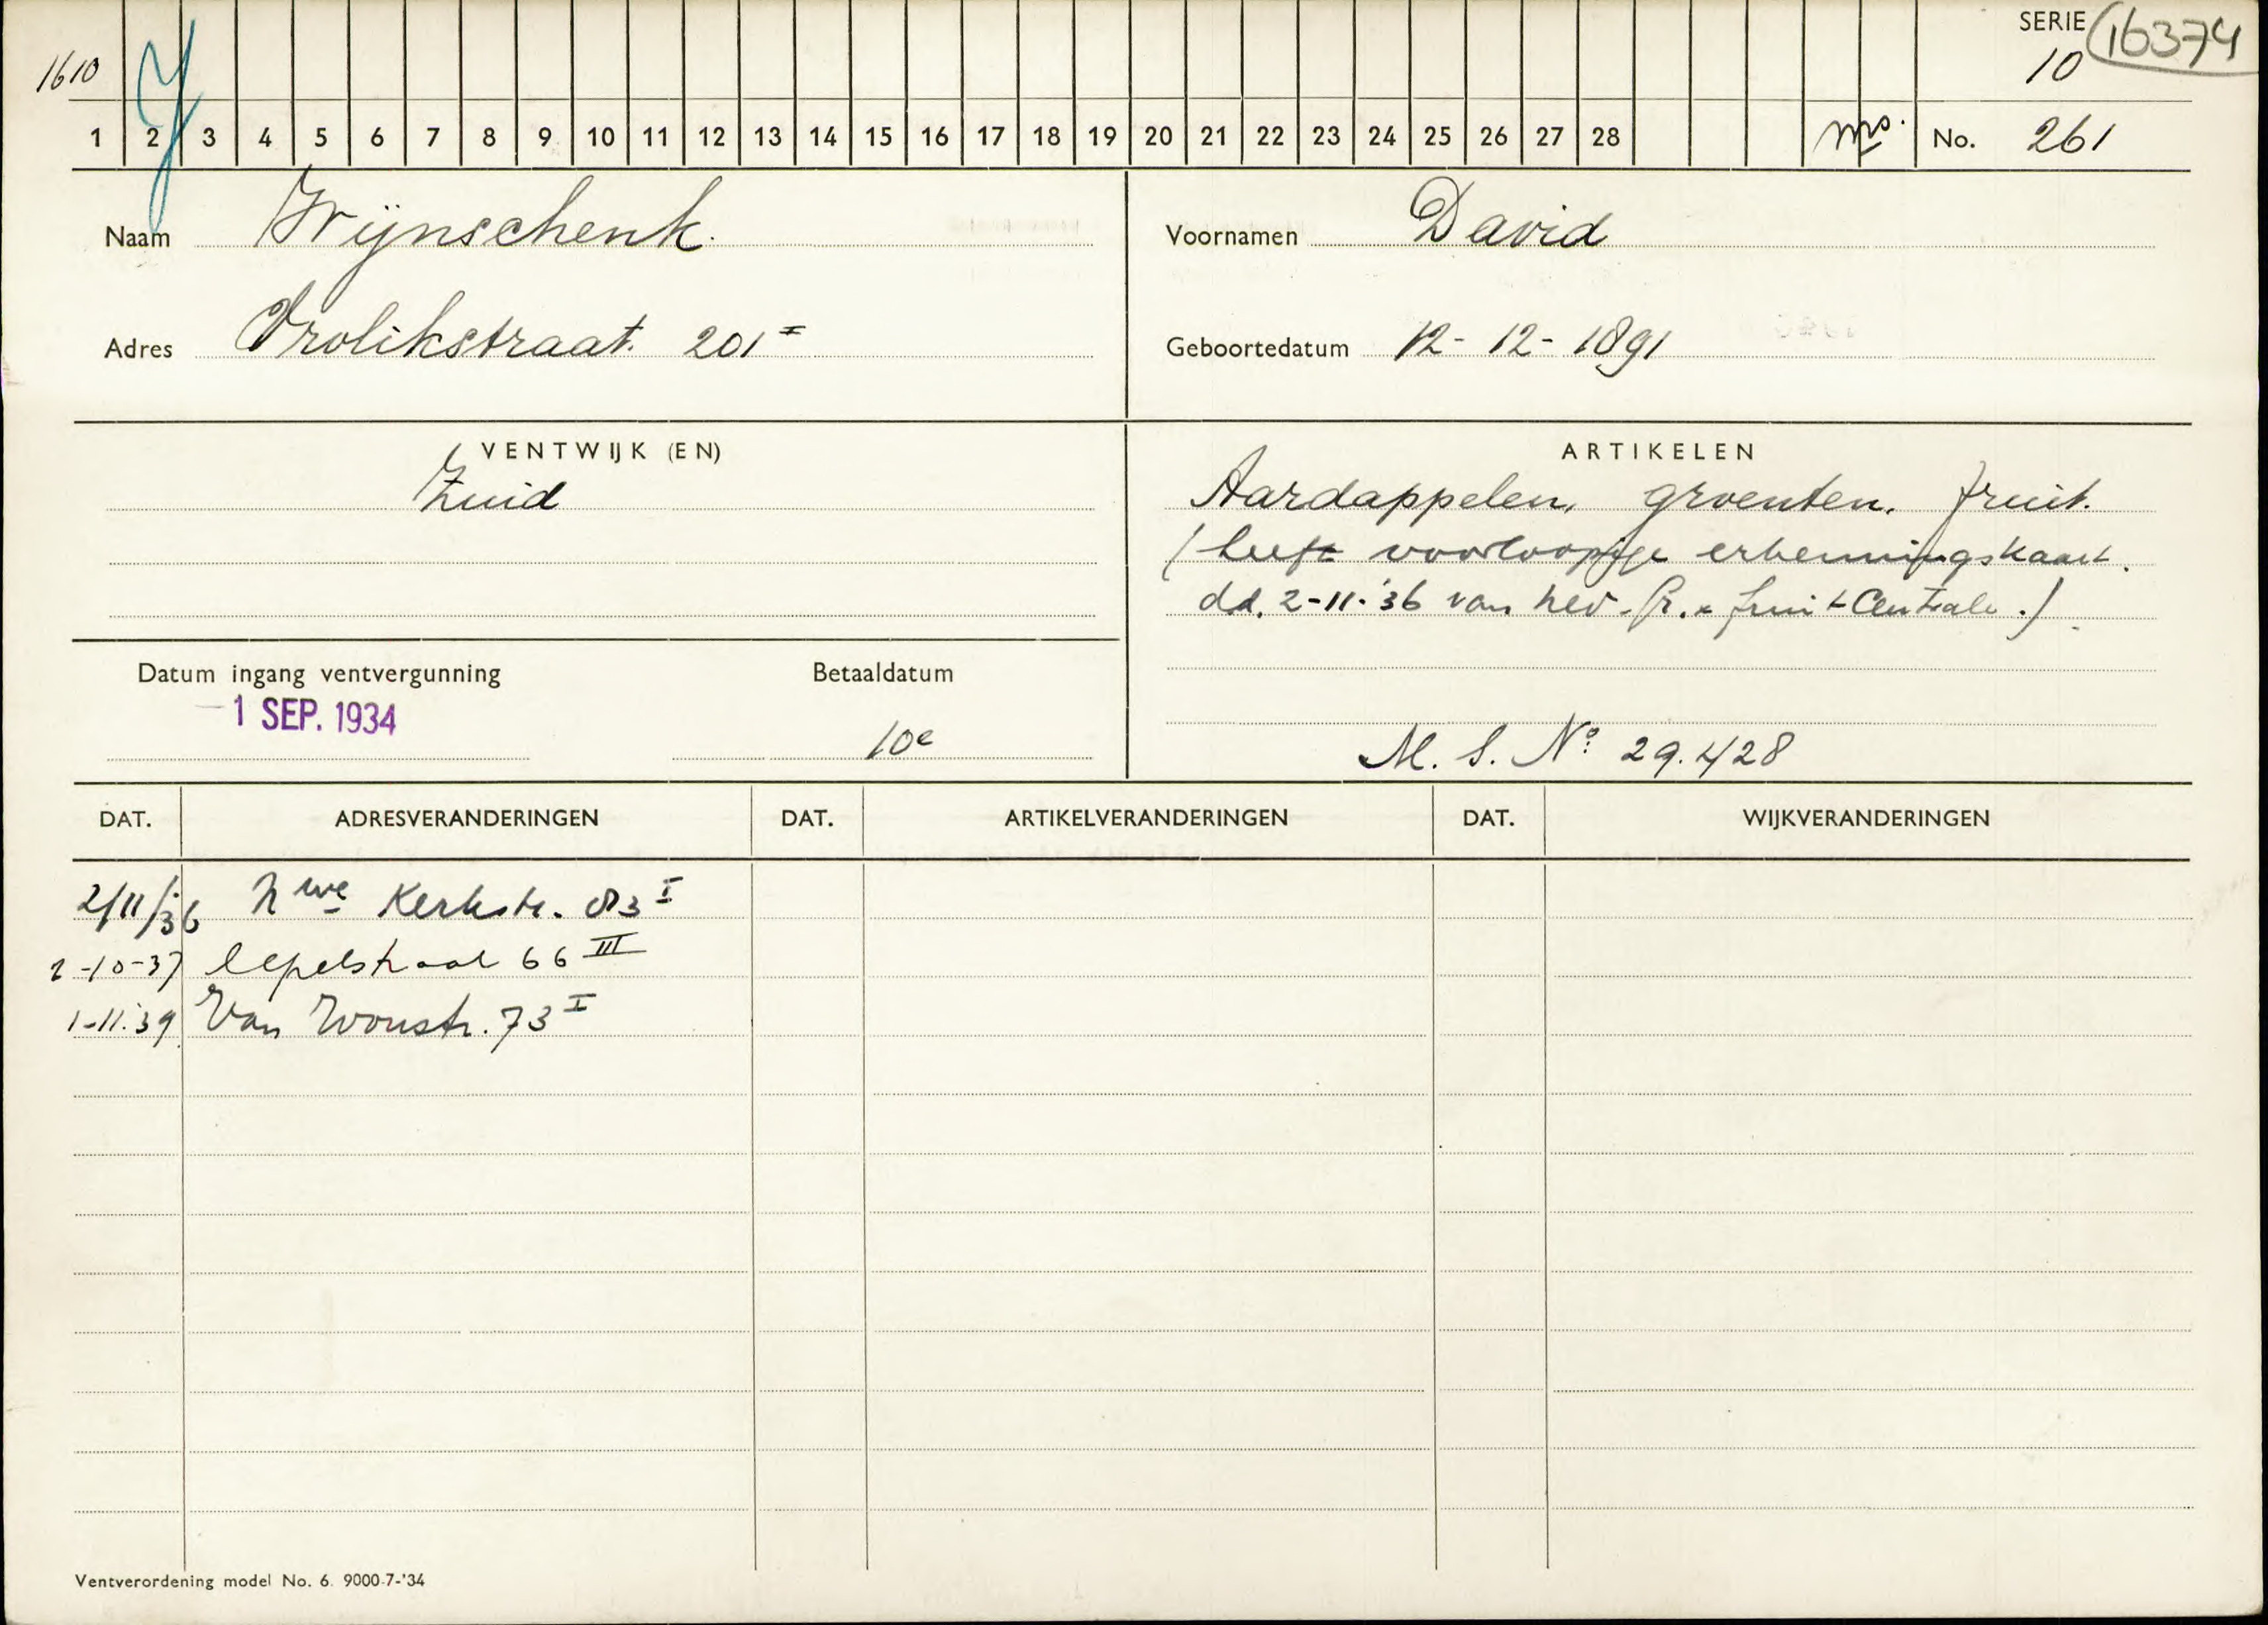 SERIE (16374
1610 10
1 2 3 4 5 6 7 8 9 10 11 12 13 14 15 16 17 18 19 20 21 22 23 24 25 26 27 28 No. 261
Naam Wijnschenk. Voornamen David
Adres Vrolikstraat. 201 I Geboortedatum 12-12-1891
VENTWIJK (EN) ARTIKELEN
Zuid Aardappelen, groenten, fruit.
(heeft voorloopige erkenningskaart.
dd. 2-11-'36 van Ned. Gr. & fruit Centrale.)
Datum ingang ventvergunning Betaaldatum
1 SEP. 1934
10e M. S. No: 29.428
DAT. ADRESVERANDERINGEN DAT. ARTIKELVERANDERINGEN DAT. WIJKVERANDERINGEN
2/11/'36 Nwe Kerkstr. 83 I
1-10-37 Lepelstraat 66 III
1-11-'39 Van Woustr. 73 I
Ventverordening model No. 6. 9000-7-'34